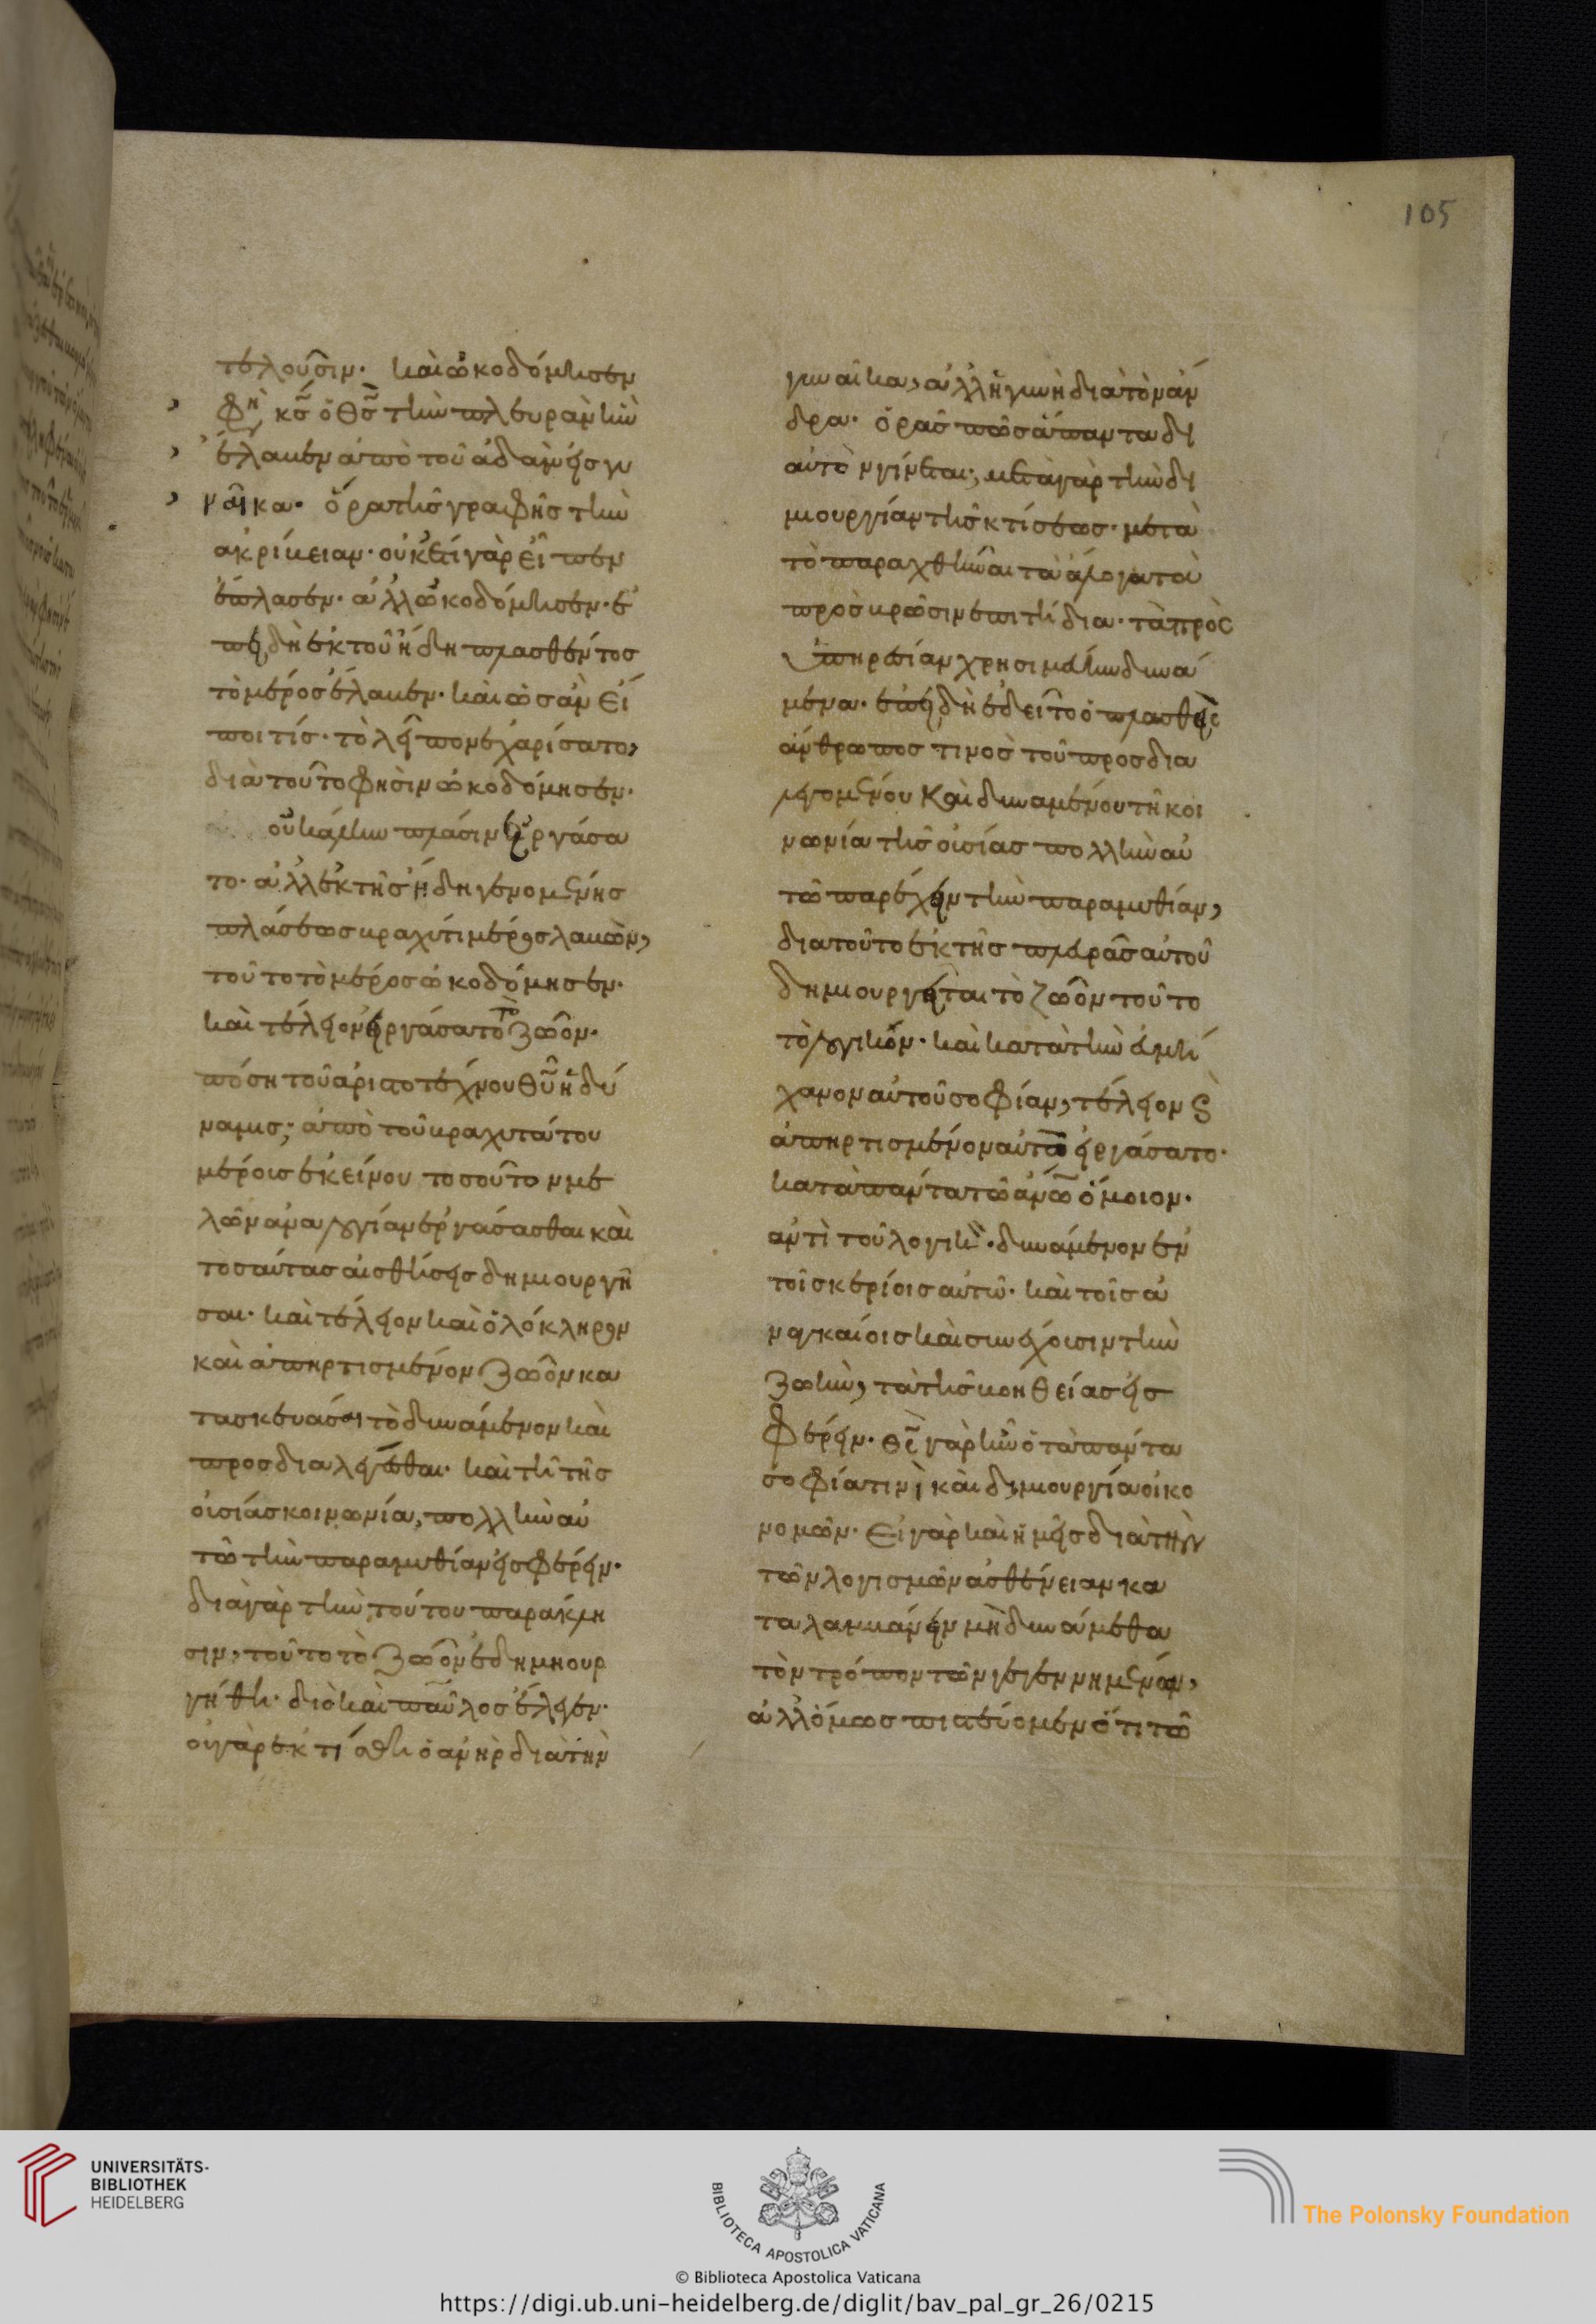 105
τελοῦσιν· καὶ ὠκοδόμησεν
φη κ̅ς̅ ὁ θ̅ς̅ τὴν πλευρὰν ἣν
ἔλαβεν ἀπὸ τοῦ ἀδὰμ εἰς γυ
ναῖκα· ὅρα τῆς γραφῆς τὴν
ακρίβειαν· οὐκέτι γὰρ εἶπεν
ἔπλασεν· ἀλλ ὠκοδόμησεν· ἐ
πειδὴ ἐκ τοῦ ἤδη πλασθέντος
τὸ μέρος ἔλαβεν· καὶ ὡς ἂν εἴ
ποι τίς· τὸ λεῖπον ἐχαρίσατο,
διὰ τοῦτο φησὶν ὠκοδόμησεν·
οὐκ ἄλλην πλάσιν εἰργάσα
το· ἀλλ ἐκ τῆς ἤδη γενομένης
πλάσεως βραχύτι μέρος λαβὼν,
τοῦτο τὸ μέρος ὠκοδόμησεν·
καὶ τέλειον εἰργάσατο τὸ ζῶον·
πόση τοῦ ἀριστοτέχνου θ̅υ̅ ἡ δύ
ναμις; ἀπὸ τοῦ βραχυτάτου
μέροις ἐκείνου τοσοῦτον με
λῶν αναλογίαν ἐργάσασθαι καὶ
τοσαύτας αἰσθήσεις δημιουργῆ
σαι· καὶ τέλειον καὶ ὁλόκληρον
καὶ ἀπηρτισμένον ζῶον κα
τασκευάσαι τὸ δυνάμενον καὶ
προσδιαλέγεσθαι· καὶ τῆ τῆς
οὐσίας κοινωνία, πολλὴν αὐ
τῶ τὴν παραμυθίαν εἰσφέρειν·
διὰ γὰρ τὴν τούτου παράκλη
σιν, τοῦτο τὸ ζῶον ἐδημηουρ
γήθη· διὸ καὶ παῦλος ἔλεγεν·
οὐ γὰρ ἐκτίσθη ὁ ἀνὴρ διὰ τὴν
γυναῖκα, ἀλλ ἡ γυνὴ διὰ τὸν ἄν
δρα· ὁρᾶς πῶς ἅπαντα δι
αὐτὸν γίνεται; μετὰ γὰρ τὴν δι
μιουργίαν τῆς κτίσεως· μετὰ
τὸ παραχθῆναι τὰ ἄλογα τὰ
πρὸς βρῶσιν ἐπιτήδια· τὰ πρὸς
ὑπηρεσίαν χρησιμεύειν δυνά
μενα· ἐπειδὴ ἐδεῖτο ὁ πλασθεὶς
ἄνθρωπος τινος τοῦ προσδια
λεγομένου καὶ δυναμένου τῆ κοι
νωνία τῆς οὐσίας πολλὴν αὐ
τῶ παρέχειν τὴν παραμυθίαν,
διατοῦτο ἐκ τῆς πλευρᾶς αὐτοῦ
δημιουργεῖται τὸ ζῶον τοῦτο
τὸ λογικόν· καὶ κατὰ τὴν ἀμή
χανον αὐτοῦ σοφίαν, τέλειον ϗ
ἀπηρτισμένον αὐτὸ εἰργάσατο·
κατὰ πάντα τῶ ἀν̅ω̅ ὅμοιον·
αντὶ τοῦ λογικὸν· δυνάμενον ἐν
τοῖς κερίοις αὐτῶ· καὶ τοῖς ἀ
ναγκαίοις καὶ συνέχουσιν τὴν
ζωὴν, τὰ τῆς βοηθείας εἰσ
φέρειν· θ̅ς̅ γὰρ ἦν ὁ τὰ πάντα
σοφία τινὶ καὶ δημιουργία οἰκο
νομῶν· Εἰ γὰρ καὶ ἡμεῖς διὰ τὴν
τῶν λογισμῶν ἀσθένειαν κα
ταλαμβάνειν μὴ δυνάμεθα
τὸν τρόπον τῶν γεγεννημένων,
ἀλλ ὅμως πιστεύομεν ὅτι τῶ
UNIVERSITÄTS-
BIBLIOTHEK
HEIDELBERG
BIBLIOTECA APOSTOLICA VATICANA
The Polonsky Foundation
© Biblioteca Apostolica Vaticana
https://digi.ub.uni-heidelberg.de/diglit/bav_pal_gr_26/0215